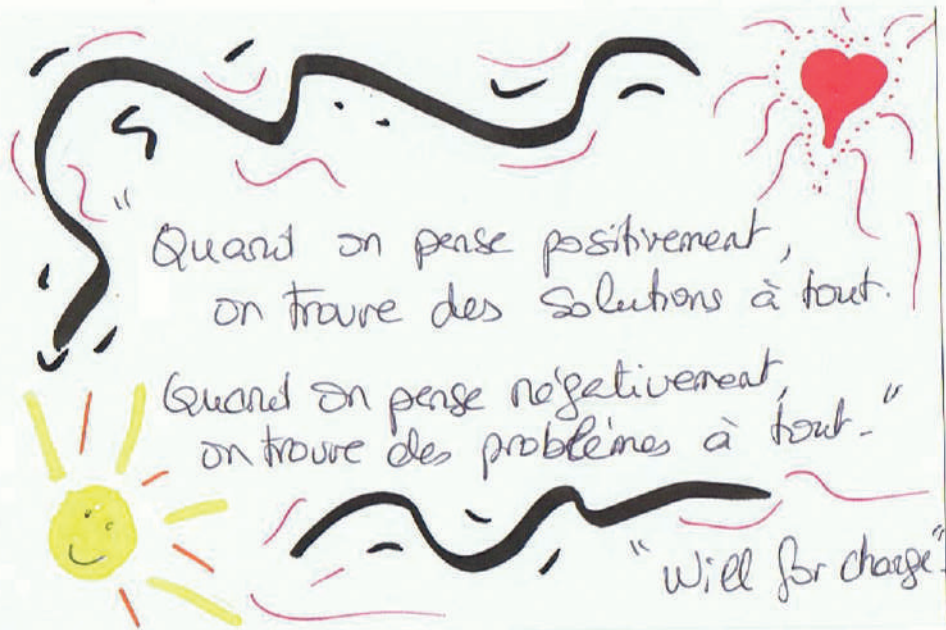 "Quand on pense positivement,
on trouve des solutions à tout.
Quand on pense négativement,
on trouve des problèmes à tout."
"Will for change".